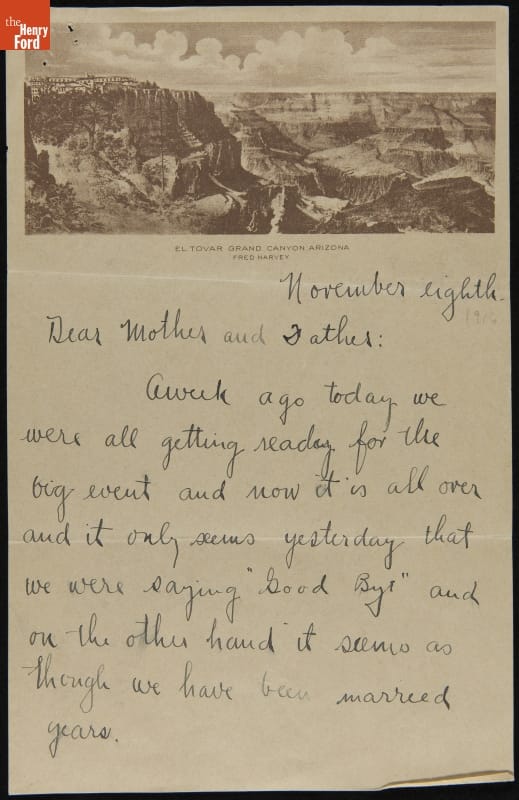 the
Henry
Ford
EL TOVAR GRAND CANYON ARIZONA
FRED HARVEY
November eighth.
Dear Mother and Father:
A week ago today we
were all getting ready for the
big event and now it is all over
and it only seems yesterday that
we were saying "Good Bye" and
on the other hand it seems as
though we have been married
years.